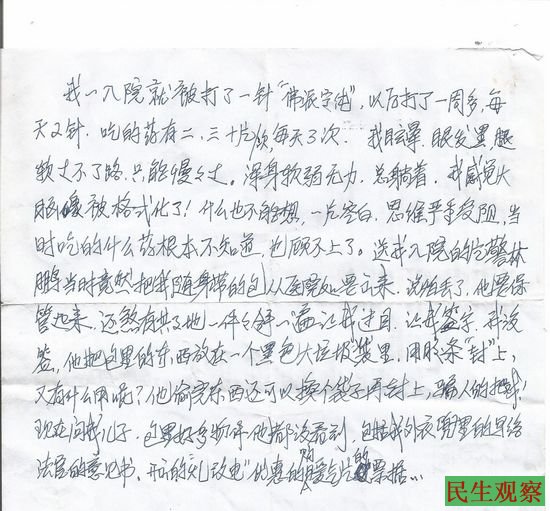 我一入院就被打了一针“佛派字纯”，以后打了一周多，每
天2针。吃的药有二、三十片/次，每天3次。我眩晕，眼发黑，腿
软，走不了路，只能慢慢走。浑身软弱无力，总躺着，我感觉大
脑像被格式化了！什么也不能想，一片空白，思维严重受阻，当
时吃的什么药根本不知道，也顾不上了。送我入院的片警林
鹏当时竟然把我随身带的包从医院处要出来，说怕丢了，他要保
管起来，还煞有其事地一件件弄一遍让我过目，让我签字，我没
签，他把包里的东西放在一个黑色大垃圾袋里，用胶条“封”上，
又有什么用呢？他偷完东西还可以换个袋子再封上，骗人的把戏！
现在问我儿子，包里好多物件他都没看到，包括我外衣兜里的写给
法官的意见书、开的“礼改电”优惠的购暖气片的票据…
民生观察